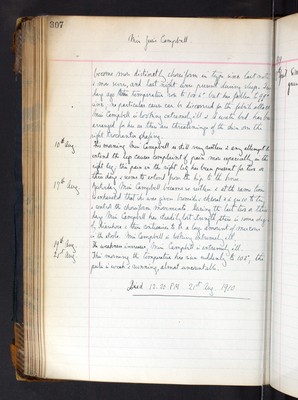 307
Miss Jessie Campbell.
become more distinctly choreiform in type since last note
a man worn, and last night were present during sleep. Two
days ago the temperature rose to 102.6° but has fallen to 99°
since, no particular cause can be discovered for the febrile attack.
Miss Campbell is looking extremely ill & a water bed has been
arranged for her as there are threatenings of the skin over the
right trochanter chafing.
10th Aug. This morning Miss Campbell is still very restless & any attempt to
extend the leg causes complaint of pain more especially in the
right leg; the pain in the right leg has been present for two or
three days & seems to extend from the hip to the knee.
17th Aug. Yesterday Miss Campbell became so restless & at the same time
exhausted that she was given Veronal & chloral
to control the choreiform movements. During the last two or three
days Miss Campbell has steadily lost strength,
& there continues to be a large amount of
in the stools. Miss Campbell is looking extremely ill.
19th Aug. The weakness increases, Miss Campbell is extremely ill.
21st Aug. This morning the temperature has risen suddenly to 105°, the
pulse is weak & running, almost uncountable.
Died 12.20 P.M. 21st Aug. 1910.